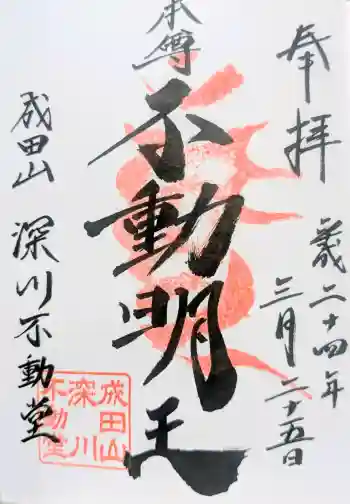 奉拝
平成二十四年
三月二十五日
本尊
不動明王
成田山
深川不動堂
成田山
深川
不動堂